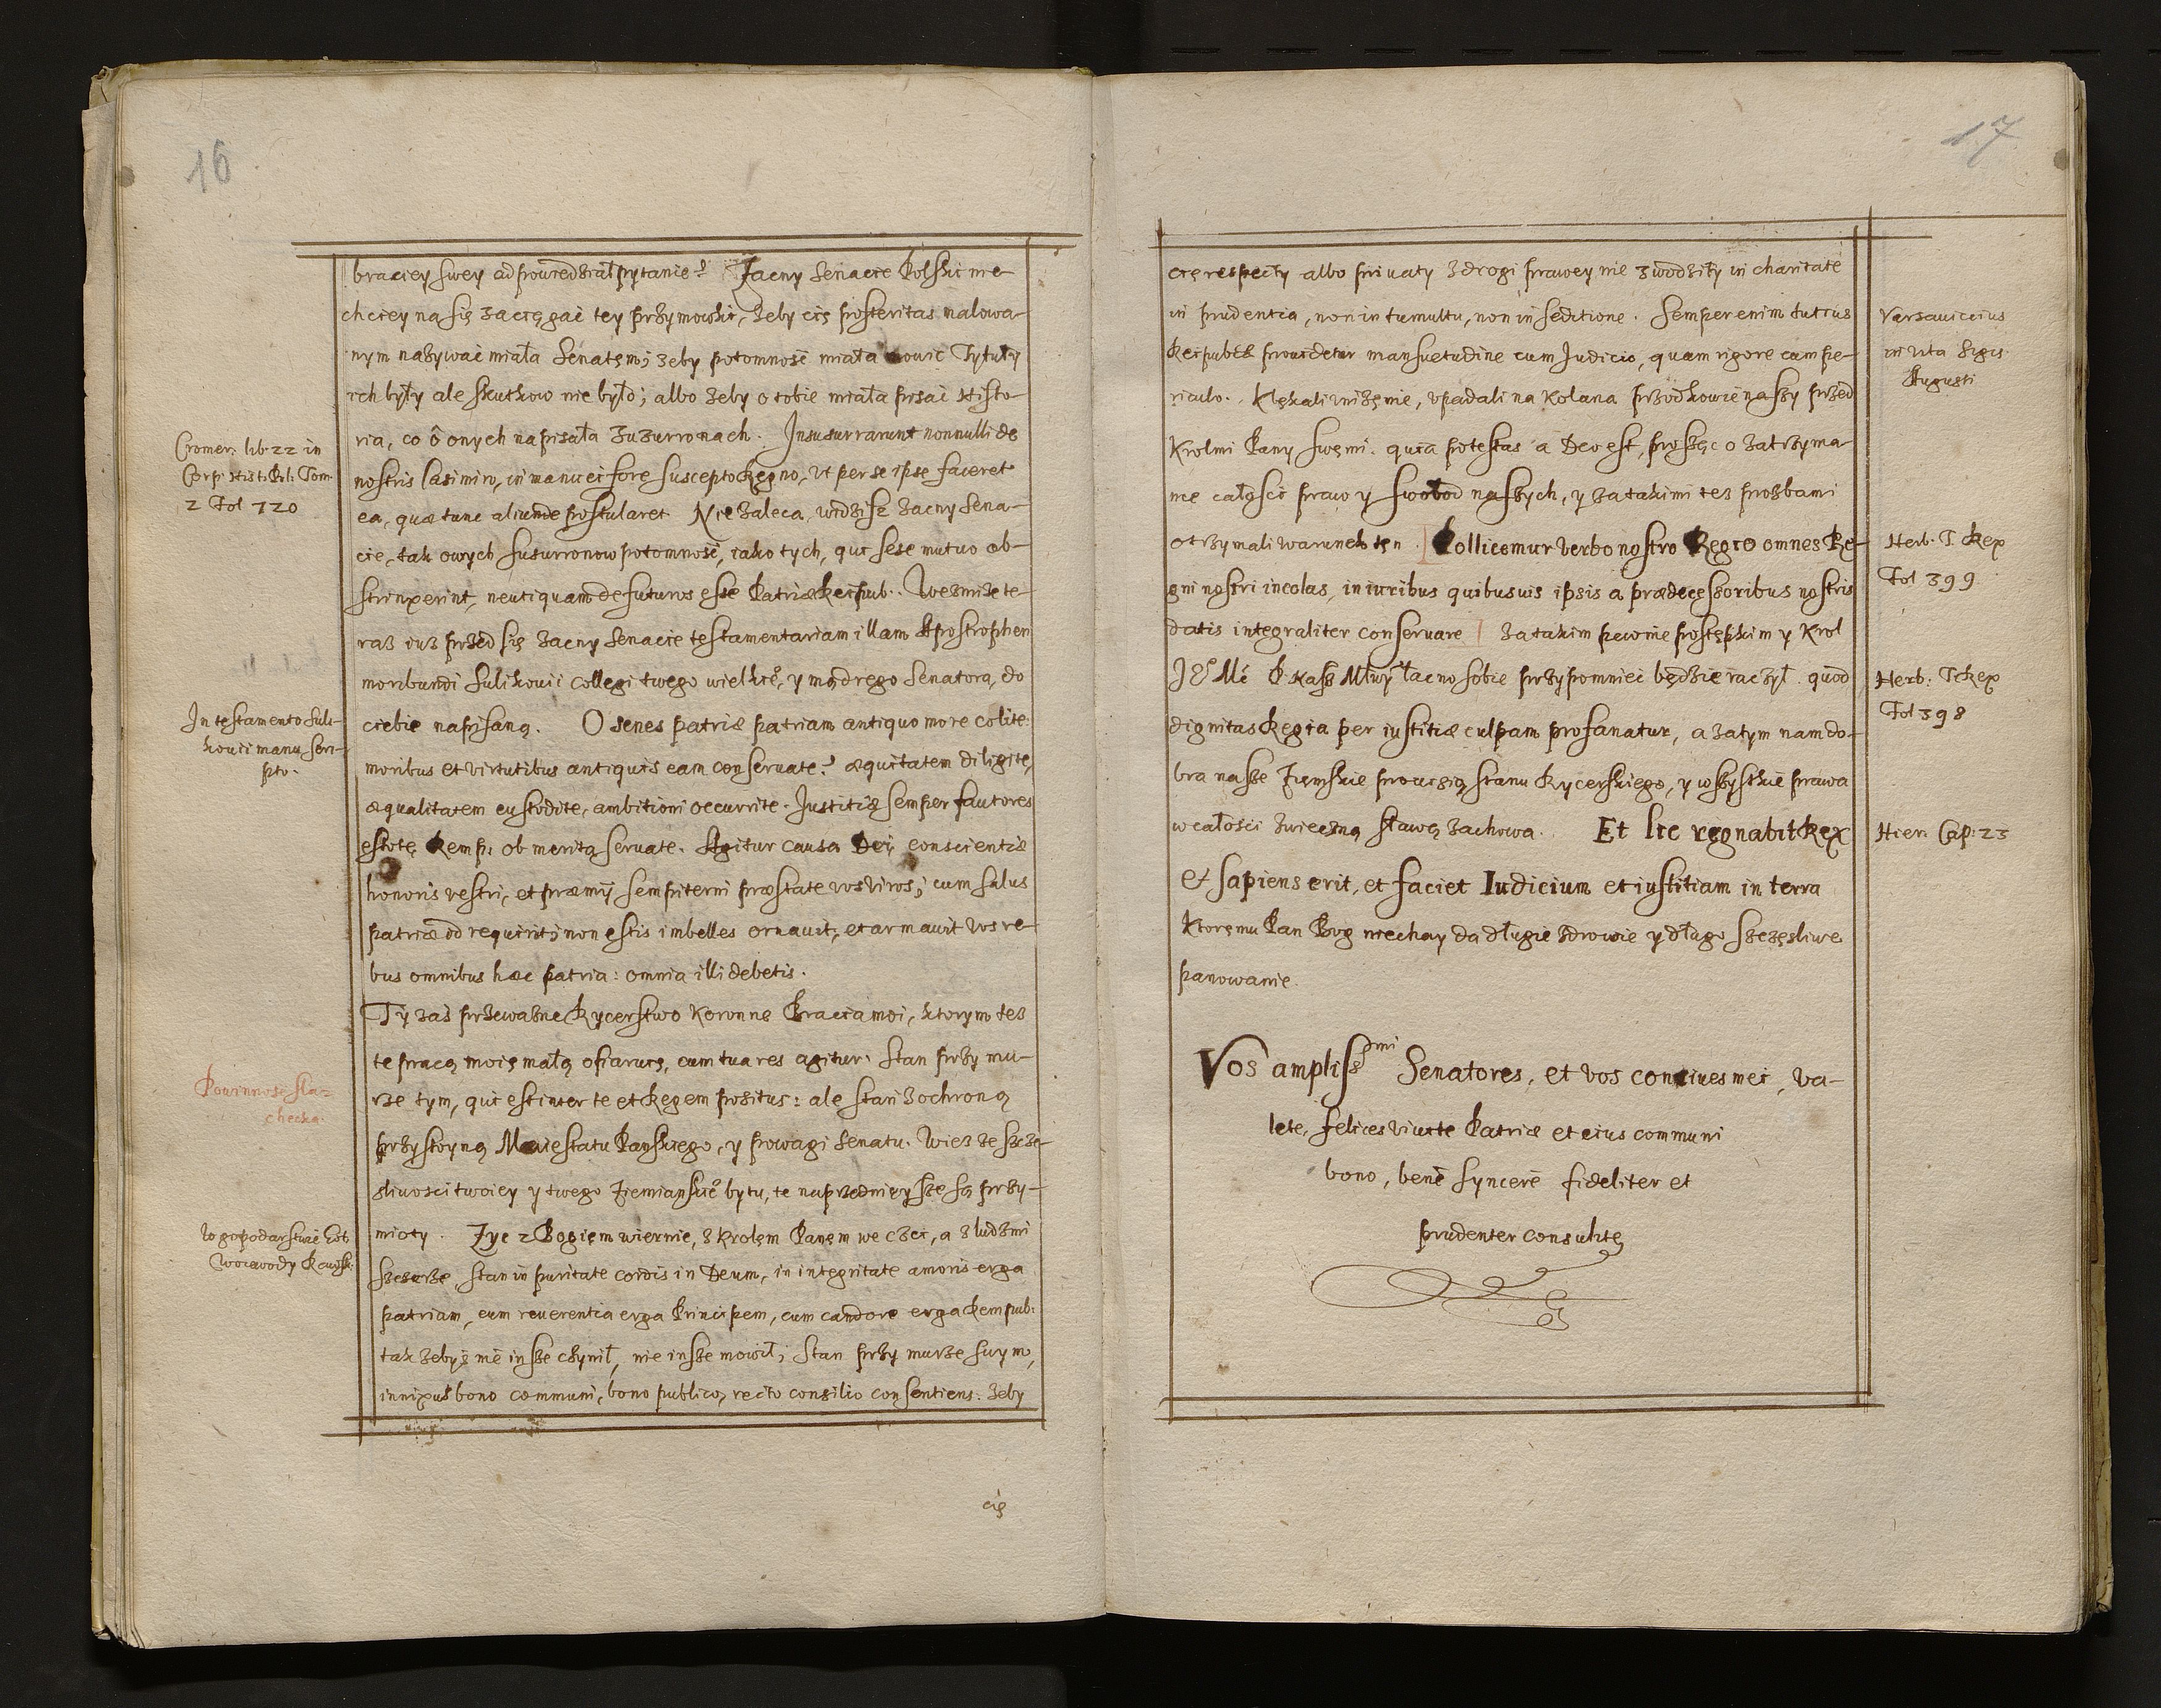 16
braciey swey adpowiedział pytanie? Zacny Senacie Polski nie
chciey na się zaciągać tey przymowki, żeby cię posteritas malowa-
nym nazywać miała Senatem; żeby potomność miała mowić Tytuły
ich były ale skutkow nie było; albo żeby o tobie miała pisać Histo-
ria, co o onych napisała Zuzurronach. Insusurrarunt nonnulli de
nostris Casimiro, in manu ei fore suscepto Regno, vt per se ipse faceret
ea, quæ tunc aliunde postularet Nie zaleca, widzisz zacny Sena-
cie, tak owych susurronow potomność, iako tych, qui sese mutuo ob-
strinxerint, neutiquam defuturos esse Patriæ Reipub. Wezmisz te-
raz iuż przed się zacny Senacie testamentariam illam Apostrophen
moribundi Sulikouii collegi twego wielkie°, y mądrego Senatora, do
ciebie napisaną. O senes patriæ patriam antiquo more colite:
moribus et virtutibus antiquis eam conseruate? æquitatem diligite,
æqualitatem custodite, ambitioni occurrite. Justitiæ semper fautores
estote Remp: ob merita seruate. Agitur causa Dei, conscientiæ
honoris vestri, et præmij sempiterni præstate vos viros; cum salus
patriæ id requirit; non estis imbelles ornauit, et armauit vos re-
bus omnibus hæc patria: omnia illi debetis.
Ty zaś przeważne Rycerstwo Koronne Bracia moi, ktorym też
te pracą moię małą ofiaruię, cum tua res agitur, Stan przy mu-
rze tym, qui est inter te et Regem positus: ale stań z ochroną
przystoyną Maiestatu Pańskiego, y powagi Senatu. Wiesz że szczę-
sliwosci twoiey y twego Ziemianskie° bytu, te naprzednieysze są przy-
mioty. Zyć z Bogiem wiernie, z Krolem Panem we czci, a z ludzmi
szczerze. Stan in puritate cordis in Deum, in integritate amoris erga
patriam, cum reuerentia erga Principem, cum candore erga Rempub:
tak żebyś nie insze czynił, nie insze mowił; Stan przy murze swym,
innixus bono communi, bono publico, recto consilio consentiens: żeby
cię
Cromer: lib: 22 in
Corp: Hist: Pol: Tom
2 Fol 720
In testamento Suli-
kouii manu scri-
pto.
Powinnosc sla-
checka.
W gospodarstwie
Woiewody Rawsk:
17
cię respecty albo priuaty z drogi prawey nie zwodziły in charitate
in prudentia, non in tumultu, non in seditione. Semper enim tutius
Reipubcæ prouidetur mansuetudine cum Judicio, quam rigore cum pe-
riculo. Klękali vnizenie, vpadali na kolana przodkowie naszy przed
Krolmi Pany swemi. quia potestas a Deo est, prosząc o zatrzyma-
nie całosci praw y swobod naszych, y za takimi też prozbami
otrzymali warunek ten. Pollicemur verbo nostro Regio omnes Re-
gni nostri incolas, in iuribus quibusuis ipsis a prædecessoribus nostris
datis integraliter conseruare za takim pewnie postępkim y Krol
Je° Mć P. nasz Młwy łacno sobie przypomnieć będzie raczył. quod
dignitas Regia per iustitiæ culpam profanatur, a zatym nam do-
bra nasze Ziemskie prouizią stanu Rycerskiego, y wszystkie prawa
w całosci z wieczną sławą zachowa. Et sic regnabit Rex
et sapiens erit, et faciet Iudicium et iustitiam in terra
Ktoremu Pan Bog niechay da długie zdrowie y długo szczęsliwe
panowanie.
Vos ampliss^imi Senatores, et vos conciues mei, va-
lete, felices viuite Patriæ et eius communi
bono, benè syncerè fideliter et
prudenter consulite
Varsauicius
in vita Sigis.
Augusti
Herb. T. Rex
Fol 399
Herb: T Rex
Fol 398
Hier: Cap: 23